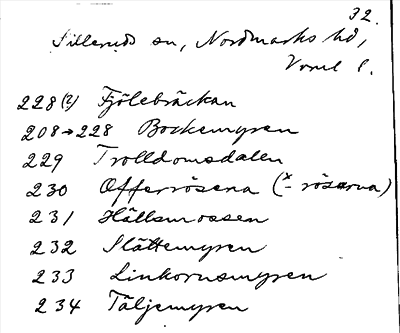 32.
Silleruds sn, Nordmarks hd,
Värml l.
228(?) Fjölebräckan
208→228 Bockemyren
229 Trolldomsdalen
230 Offerrösena (x- rösarna)
231 Hällsmossen
232 Slättemyren
233 Linkornsmyren
234 Täljemyren